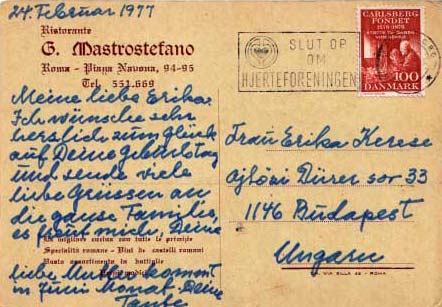 24. Februar 1977
Ristorante
G. Mastrostefano
Roma - Piazza Navona, 94-95
Tel. 551.669
Meine liebe Erika.
Ich wünsche sehr
herslich zum Glück
auf Deine Geburtstag
und sende viele
liebe Grüssen an
die ganse Familie,
es freut mich, Deine
La migliore cucina con tutte le primizie
Specialità romane - Vini di castelli romani
Vasto assortimento in bottiglie
liebe Mutti kommt
in Juni Monat. Deine
Tante
SLUT OP
OM
HJERTEFORENINGEN
CARLSBERG
FONDET
1876-1976
100
DANMARK
Frau Erika Kerese
Ajtósi Dürer sor 33
1146 Budapest
Ungarn
VIA ZILLA 22 - ROMA